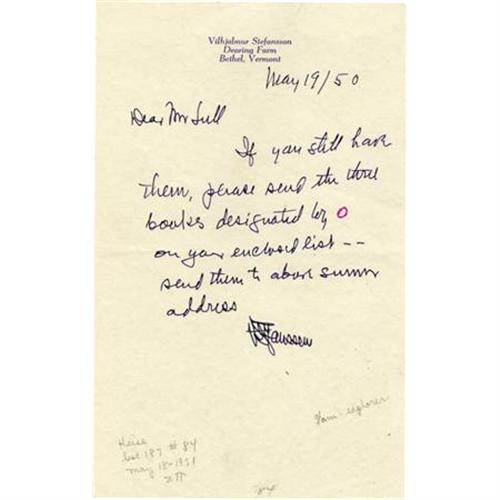 Vilhjalmur Stefansson
Dearing Farm
Bethel, Vermont
May 19/50
Dear Mr Lull
If you still have
them, please send the three
books designated by O
on your enclosed list --
send them to above summer
address
VStefansson
Heise
List 187 # 84
May 18-1951
explorer
84